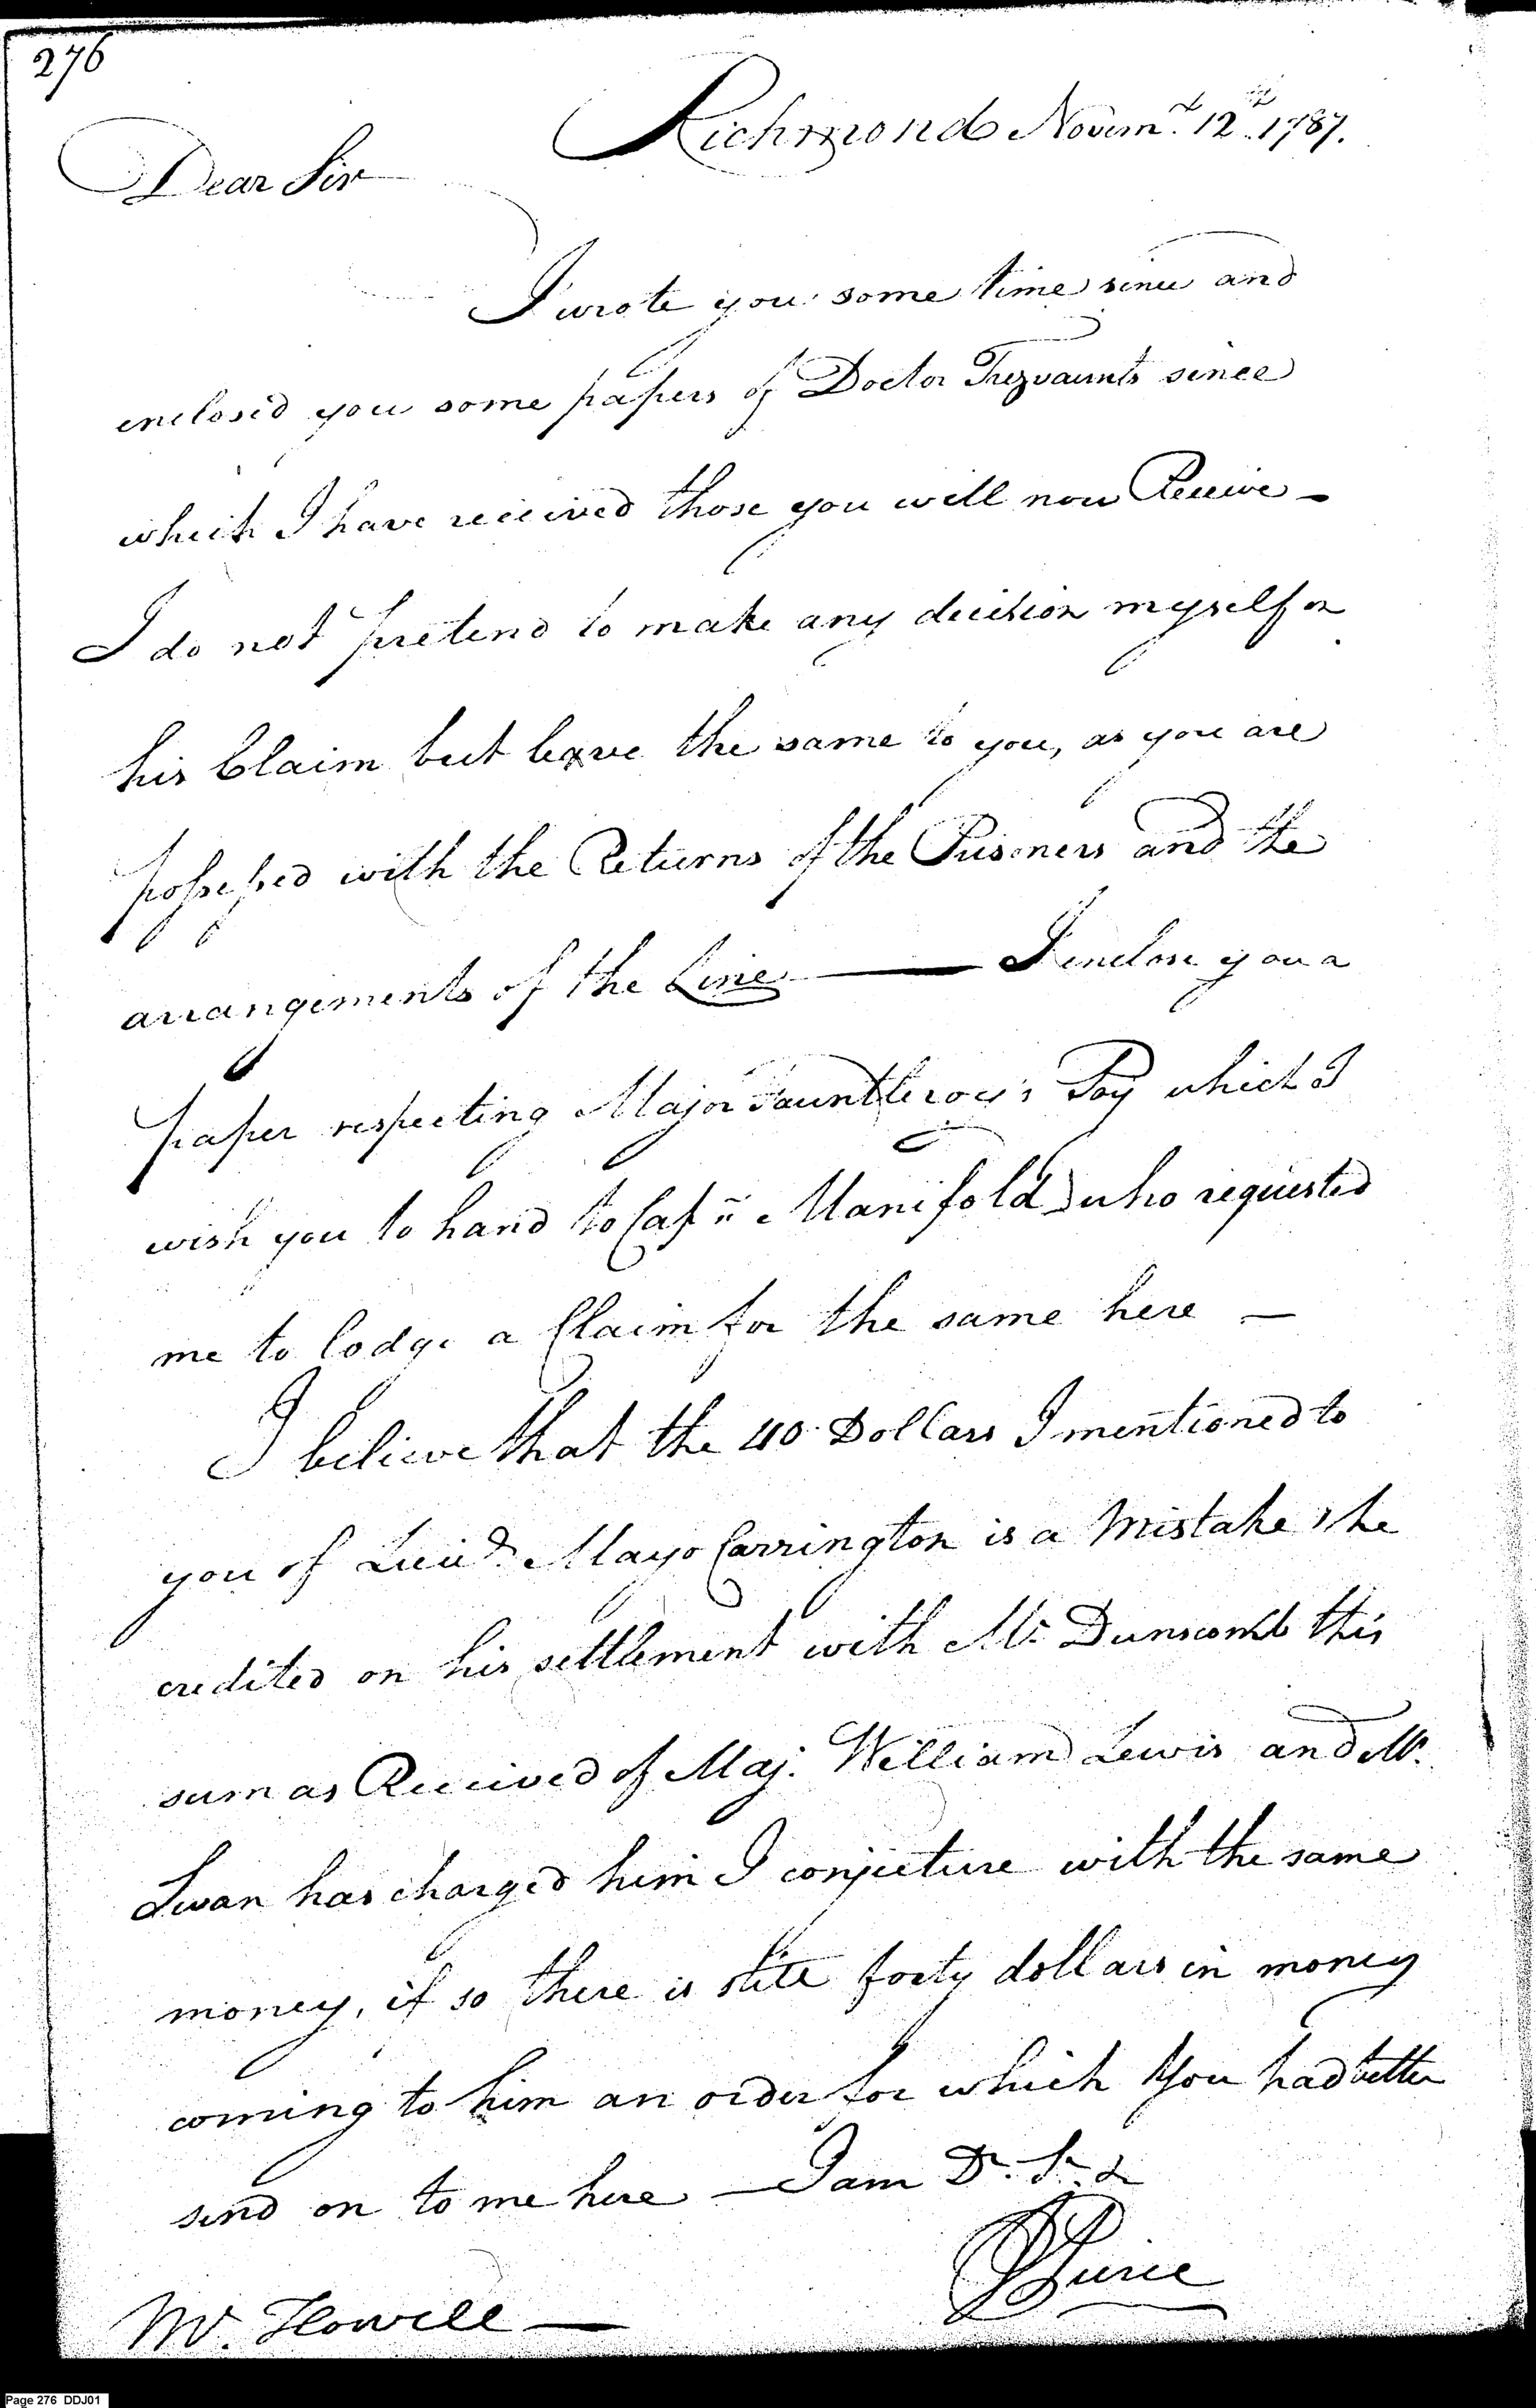 276
Richmond Novemr. 12th. 1787.
Dear Sir
I wrote you some time since and
enclos'd you some papers of Doctor Trezvaunts since
which I have received those you will now Receive -
I do not pretend to make any decision myself on
his Claim but leave the same to you, as you are
possessed with the Returns of the Prisoners and the
arrangements of the Line — I enclose you a
paper respecting Major Fauntleroy's Pay which I
wish you to hand to Capn. Manifold who requested
me to lodge a Claim for the same here —
I believe that the 40 Dollars I mentioned to
you of Lieut. Mayo Carrington is a Mistake, he
credited on his settlement with Mr. Dunscomb this
sum as Received of Maj. William Lewis and Mr.
Swan has charged him I conjecture with the same
money, if so there is still forty dollars in money
coming to him an order for which You had better
send on to me here — I am Dr. Sr. &
Mr. Howell —
Page 276 DDJ01